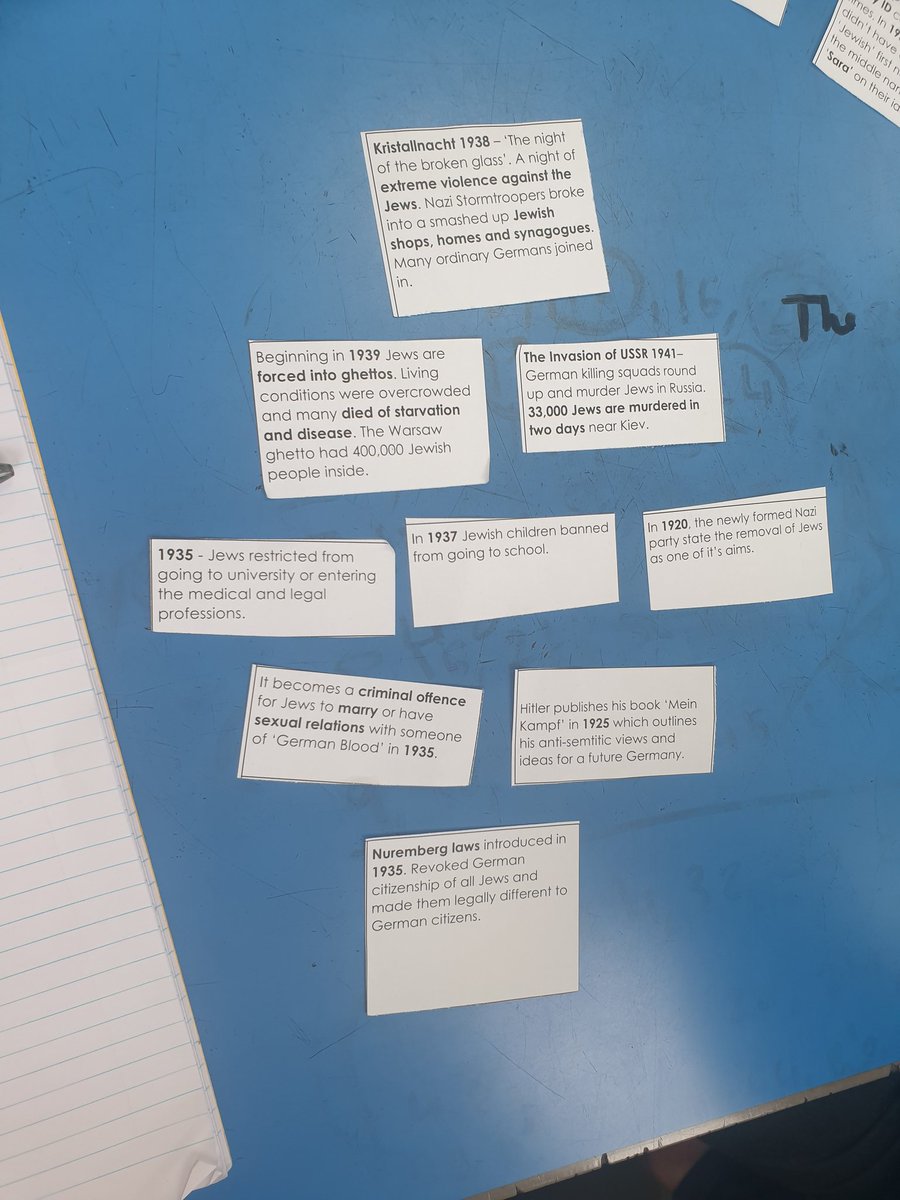 Kristallnacht 1938 – ‘The night
of the broken glass’. A night of
extreme violence against the
Jews. Nazi Stormtroopers broke
into a smashed up Jewish
shops, homes and synagogues.
Many ordinary Germans joined
in.
Beginning in 1939 Jews are
forced into ghettos. Living
conditions were overcrowded
and many died of starvation
and disease. The Warsaw
ghetto had 400,000 Jewish
people inside.
The Invasion of USSR 1941–
German killing squads round
up and murder Jews in Russia.
33,000 Jews are murdered in
two days near Kiev.
1935 - Jews restricted from
going to university or entering
the medical and legal
professions.
In 1937 Jewish children banned
from going to school.
In 1920, the newly formed Nazi
party state the removal of Jews
as one of it’s aims.
It becomes a criminal offence
for Jews to marry or have
sexual relations with someone
of ‘German Blood’ in 1935.
Hitler publishes his book ‘Mein
Kampf’ in 1925 which outlines
his anti-semtitic views and
ideas for a future Germany.
Nuremberg laws introduced in
1935. Revoked German
citizenship of all Jews and
made them legally different to
German citizens.
ID
In
didn’t have
‘Jewish’ first
the middle
‘Sara’ on their